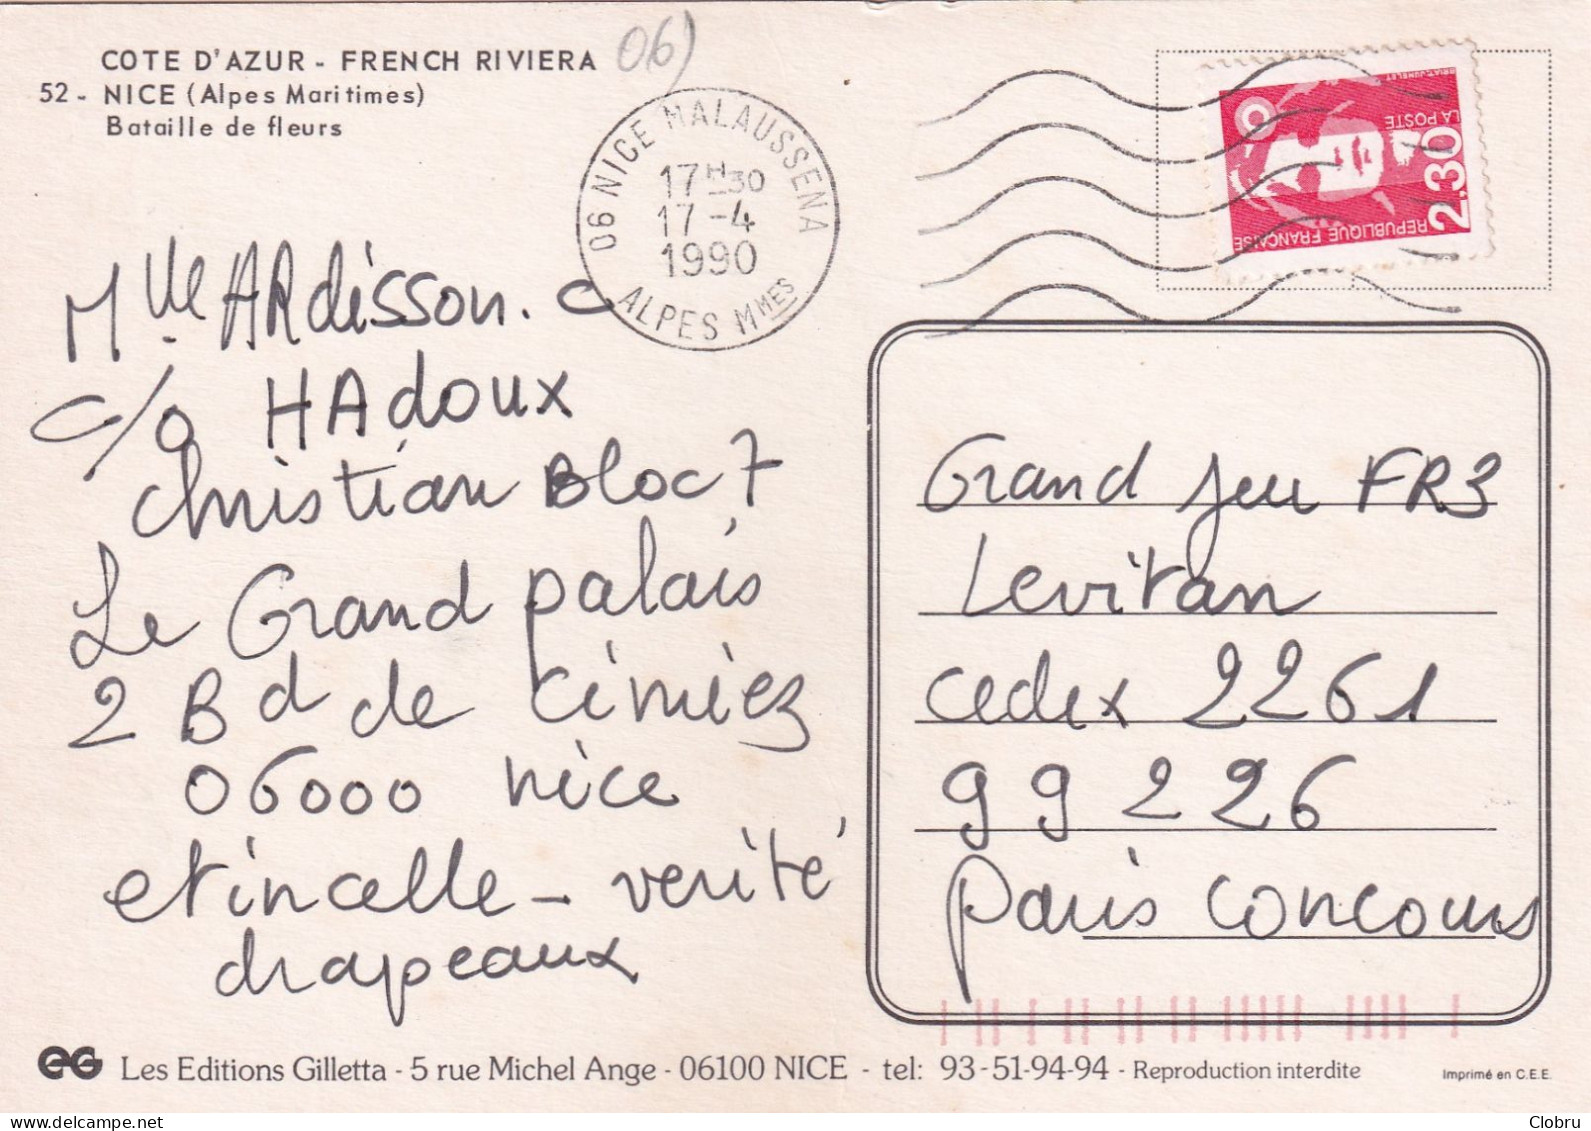 COTE D'AZUR - FRENCH RIVIERA
52 - NICE (Alpes Maritimes)
Bataille de fleurs
06)
06 NICE MALAUSSENA
17H30
17 -4
1990
ALPES MMES
BRIAT-JUMELET
LA POSTE
2,30
REPUBLIQUE FRANÇAISE
Mlle ARdisson. C
c/o HAdoux
christian Bloc 7
Le Grand palais
2 Bd de cimiez
06000 nice
etincelle - verité
drapeaux
Grand jeu FR3
Levitan
cedex 2261
99 226
paris concours
EG Les Editions Gilletta - 5 rue Michel Ange - 06100 NICE - tel: 93-51-94-94 - Reproduction interdite
Imprimé en C.E.E.
Clobru